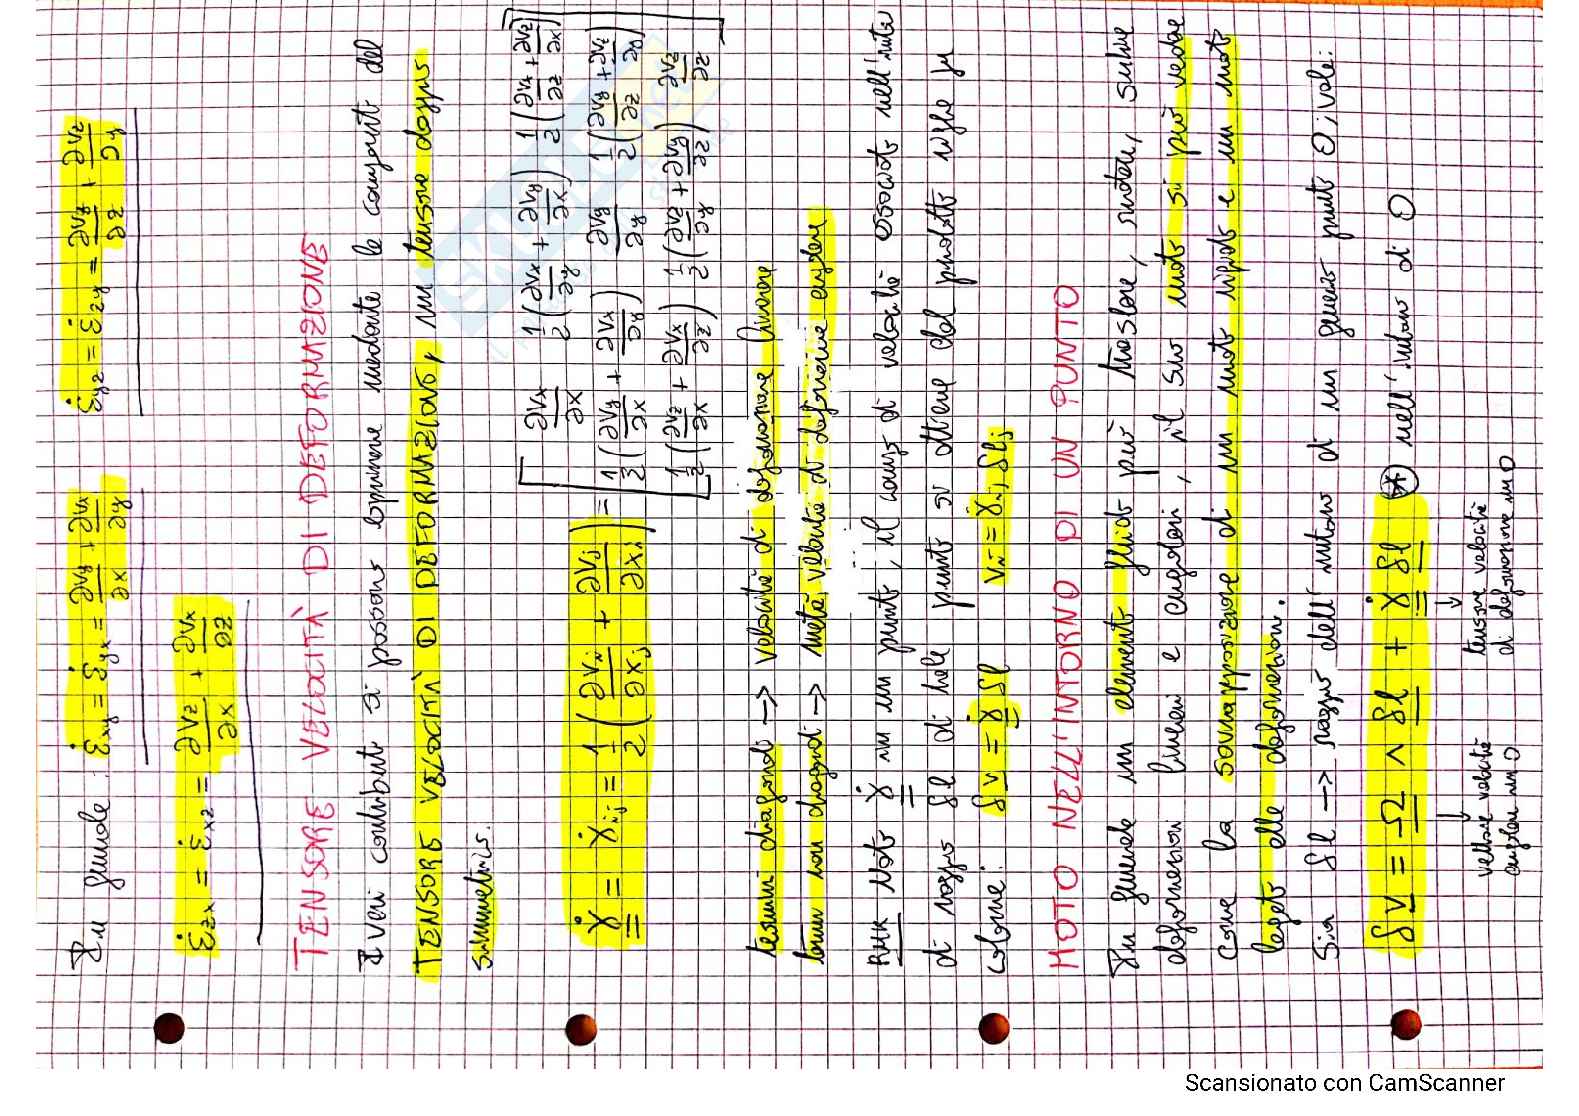 In generale: ε̇xy = ε̇yx = ∂Vy/∂x + ∂Vx/∂y    ε̇yz = ε̇zy = ∂Vy/∂z + ∂Vz/∂y
ε̇zx = ε̇xz = ∂Vz/∂x + ∂Vx/∂z
TENSORE VELOCITÀ DI DEFORMAZIONE
I veri contributi si possono esprimere mediante le componenti del
TENSORE VELOCITÀ DI DEFORMAZIONE, un tensore doppio
simmetrico.
γ̇ = γ̇ij = 1/2 (∂Vi/∂xj + ∂Vj/∂xi) =
[ ∂Vx/∂x    1/2 (∂Vx/∂y + ∂Vy/∂x)    1/2 (∂Vx/∂z + ∂Vz/∂x)
1/2 (∂Vy/∂x + ∂Vx/∂y)    ∂Vy/∂y    1/2 (∂Vy/∂z + ∂Vz/∂y)
1/2 (∂Vz/∂x + ∂Vx/∂z)    1/2 (∂Vz/∂y + ∂Vy/∂z)    ∂Vz/∂z ]
termini diagonali → velocità di deformazione lineare
termini non diagonali → metà velocità di deformazione angolare
RMK Noto γ̇ in un punto, il campo di velocità associato nell'intorno
di raggio δl di tale punto si ottiene dal prodotto righe per
colonne: δv = γ̇ δl    vi = γ̇ij δlj
MOTO NELL'INTORNO DI UN PUNTO
In generale un elemento fluido può traslare, ruotare, subire
deformazioni lineari e angolari, il suo moto si può vedere
come la sovrapposizione di un moto rigido e un moto
legato alle deformazioni.
Sia δl → raggio dell'intorno di un generico punto O; vale:
δv = Ω ∧ δl + γ̇ δl ⊛ nell'intorno di O
vettore velocità    tensore velocità
angolare in O    di deformazione in O
Scansionato con CamScanner